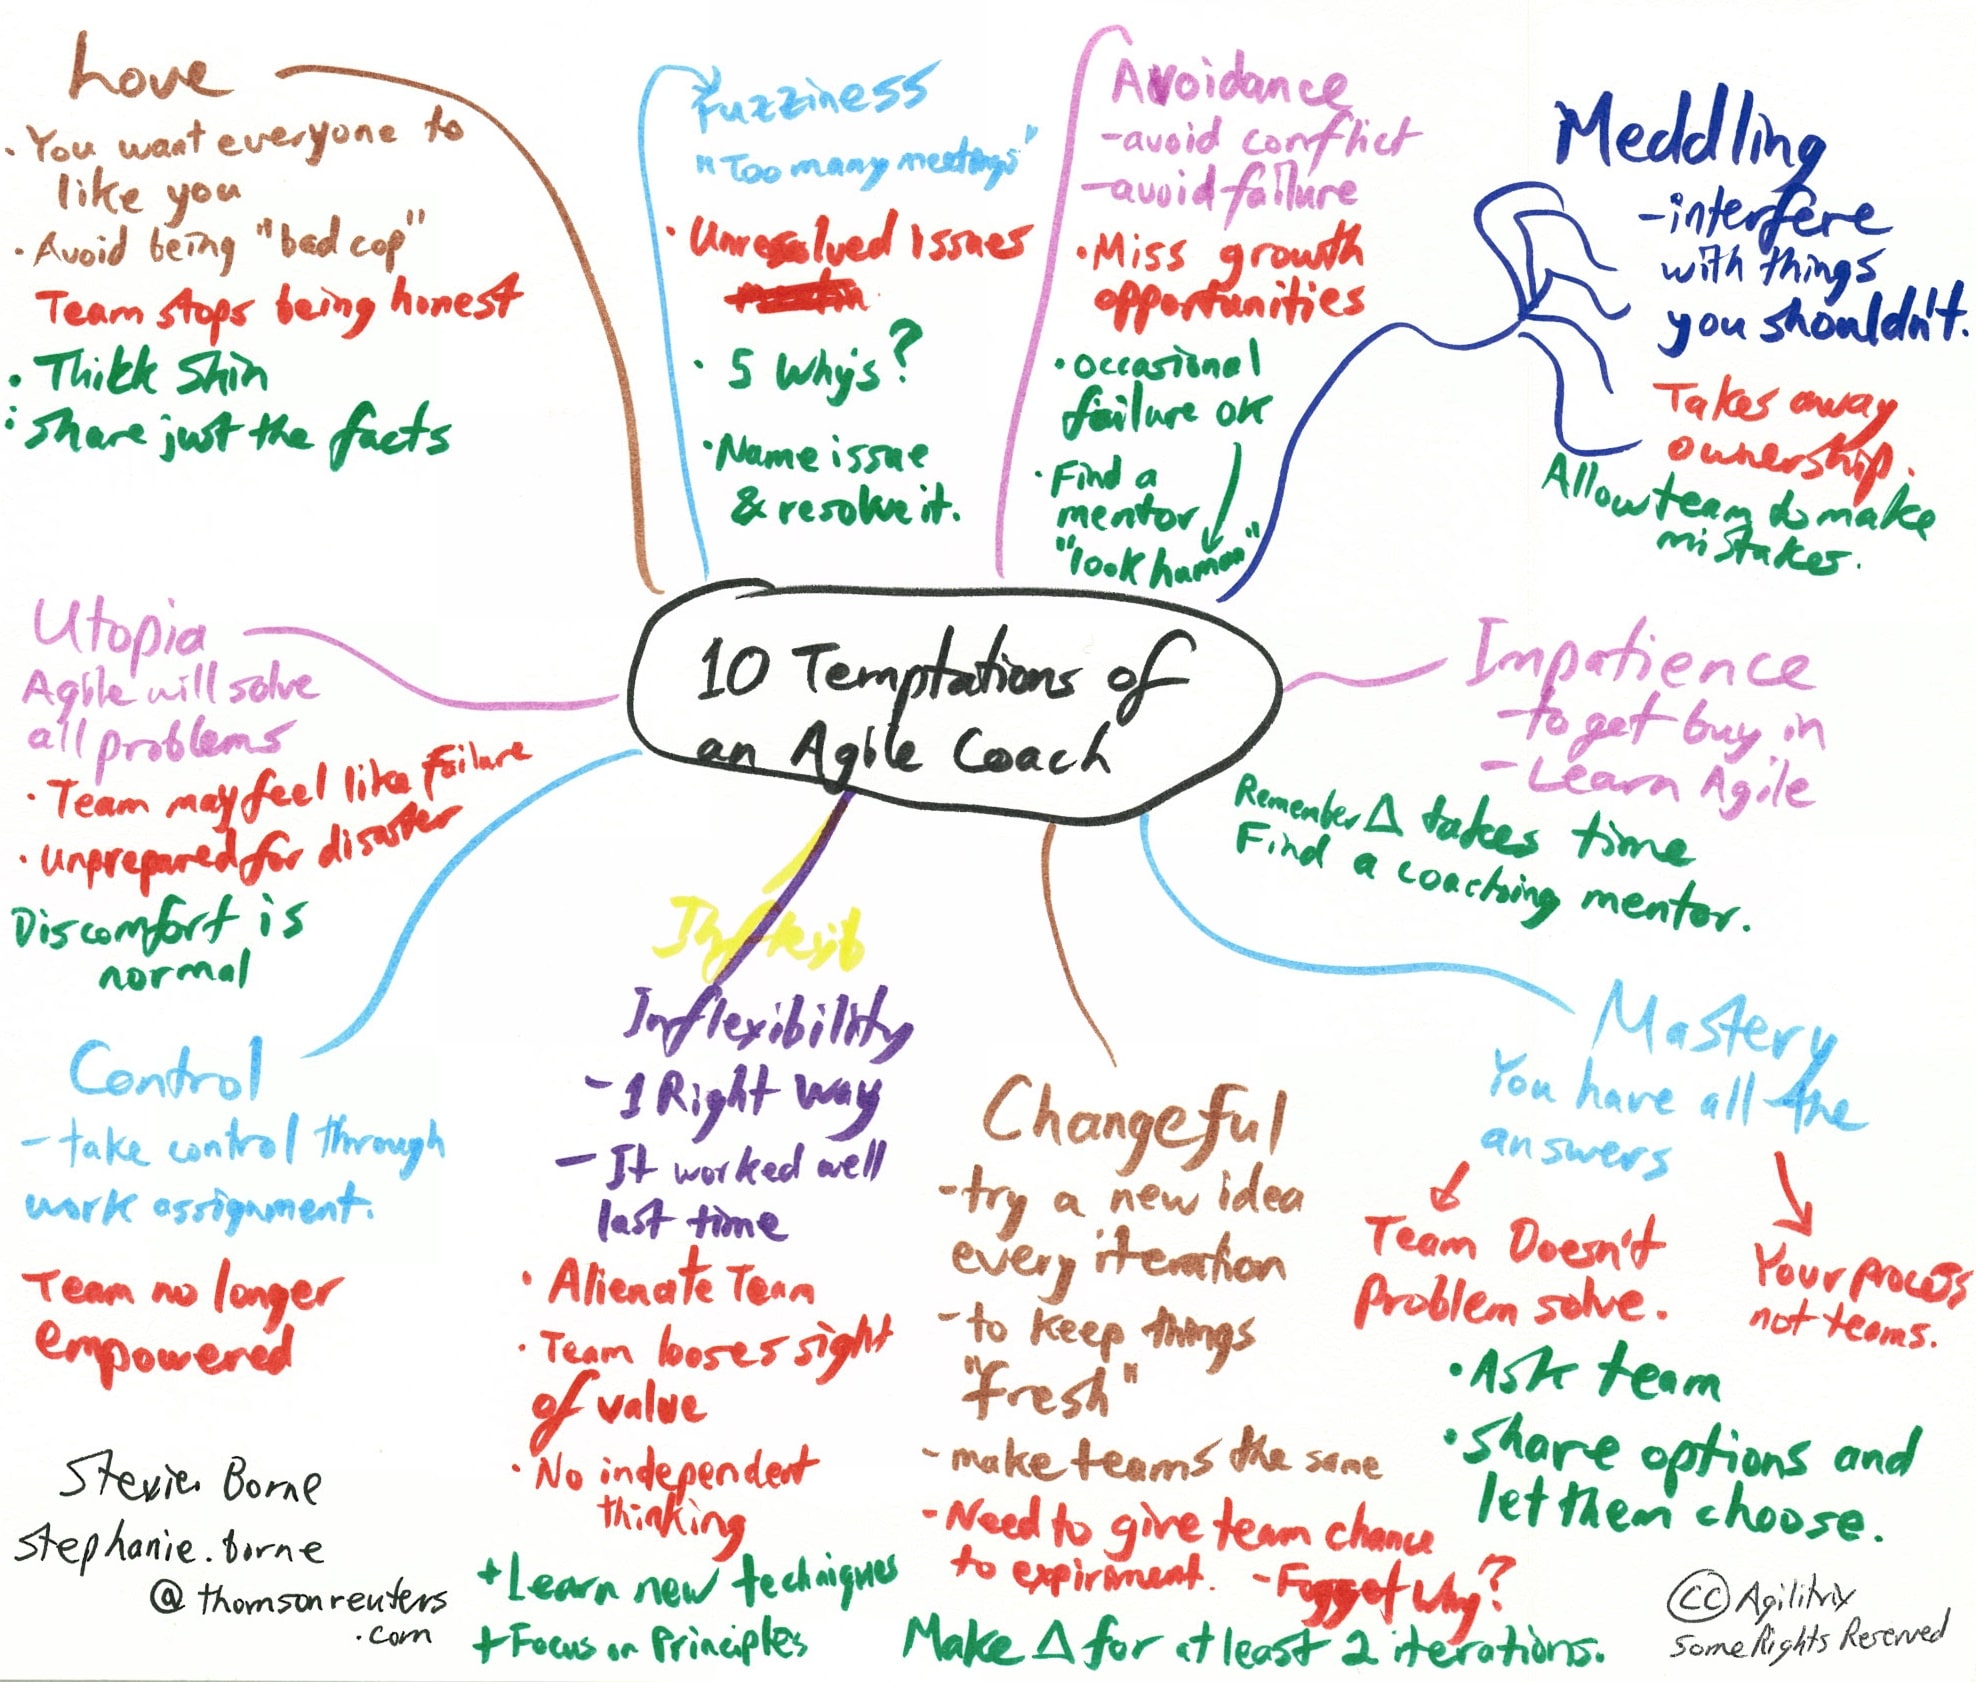 10 Temptations of
an Agile Coach
Love
· You want everyone to
like you
· Avoid being "bad cop"
Team stops being honest
· Thikk Skin
: Share just the facts
Fuzziness
"Too many meetings"
· Unresolved Issues
· 5 Why's?
· Name issue
& resolve it.
Avoidance
- avoid conflict
- avoid failure
· Miss growth
opportunities
· occasional
failure OK
· Find a
mentor
"look human"
Meddling
- interfere
with things
you shouldn't.
Takes away
ownership.
Allow team to make
mistakes.
Impatience
- to get buy in
- Learn Agile
Remember Δ takes time
Find a coaching mentor.
Mastery
You have all the
answers
Team Doesn't
Problem solve.
Your process
not teams.
· Ask team
· Share options and
let them choose.
Changeful
- try a new idea
every iteration
- to keep things
"fresh"
- make teams the same
- Need to give team chance
to expiriment.
- Fogget why?
Make Δ for at least 2 iterations.
Inflexib
Inflexibility
- 1 Right way
- It worked well
last time
· Alienate Team
· Team looses sight
of value
· No independent
thinking
+ Learn new techniques
+ Focus on Principles
Control
- take control through
work assignment.
Team no longer
empowered
Utopia
Agile will solve
all problems
· Team may feel like failure
· Unprepared for disaster
Discomfort is
normal
Stevie Borne
stephanie.borne
@thomsonreuters
.com
CC Agilitrix
Some Rights Reserved